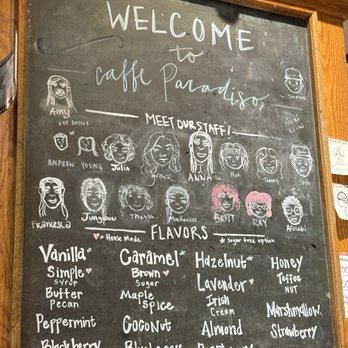 WELCOME
to
caffe Paradiso
Amy
MEET OUR STAFF!
OUR BOSSES
ANDREW YOUNG Julia grace ANNA
Francesca Jungbow Mackenzie BRITT RAY
FLAVORS
House Made sugar free option
Vanilla Caramel Hazelnut Honey
Simple Syrup Brown Sugar Lavender Toffee NUT
Butter pecan Maple Spice Irish Cream Marshmallow
Peppermint Coconut Almond Strawberry
Blackberry